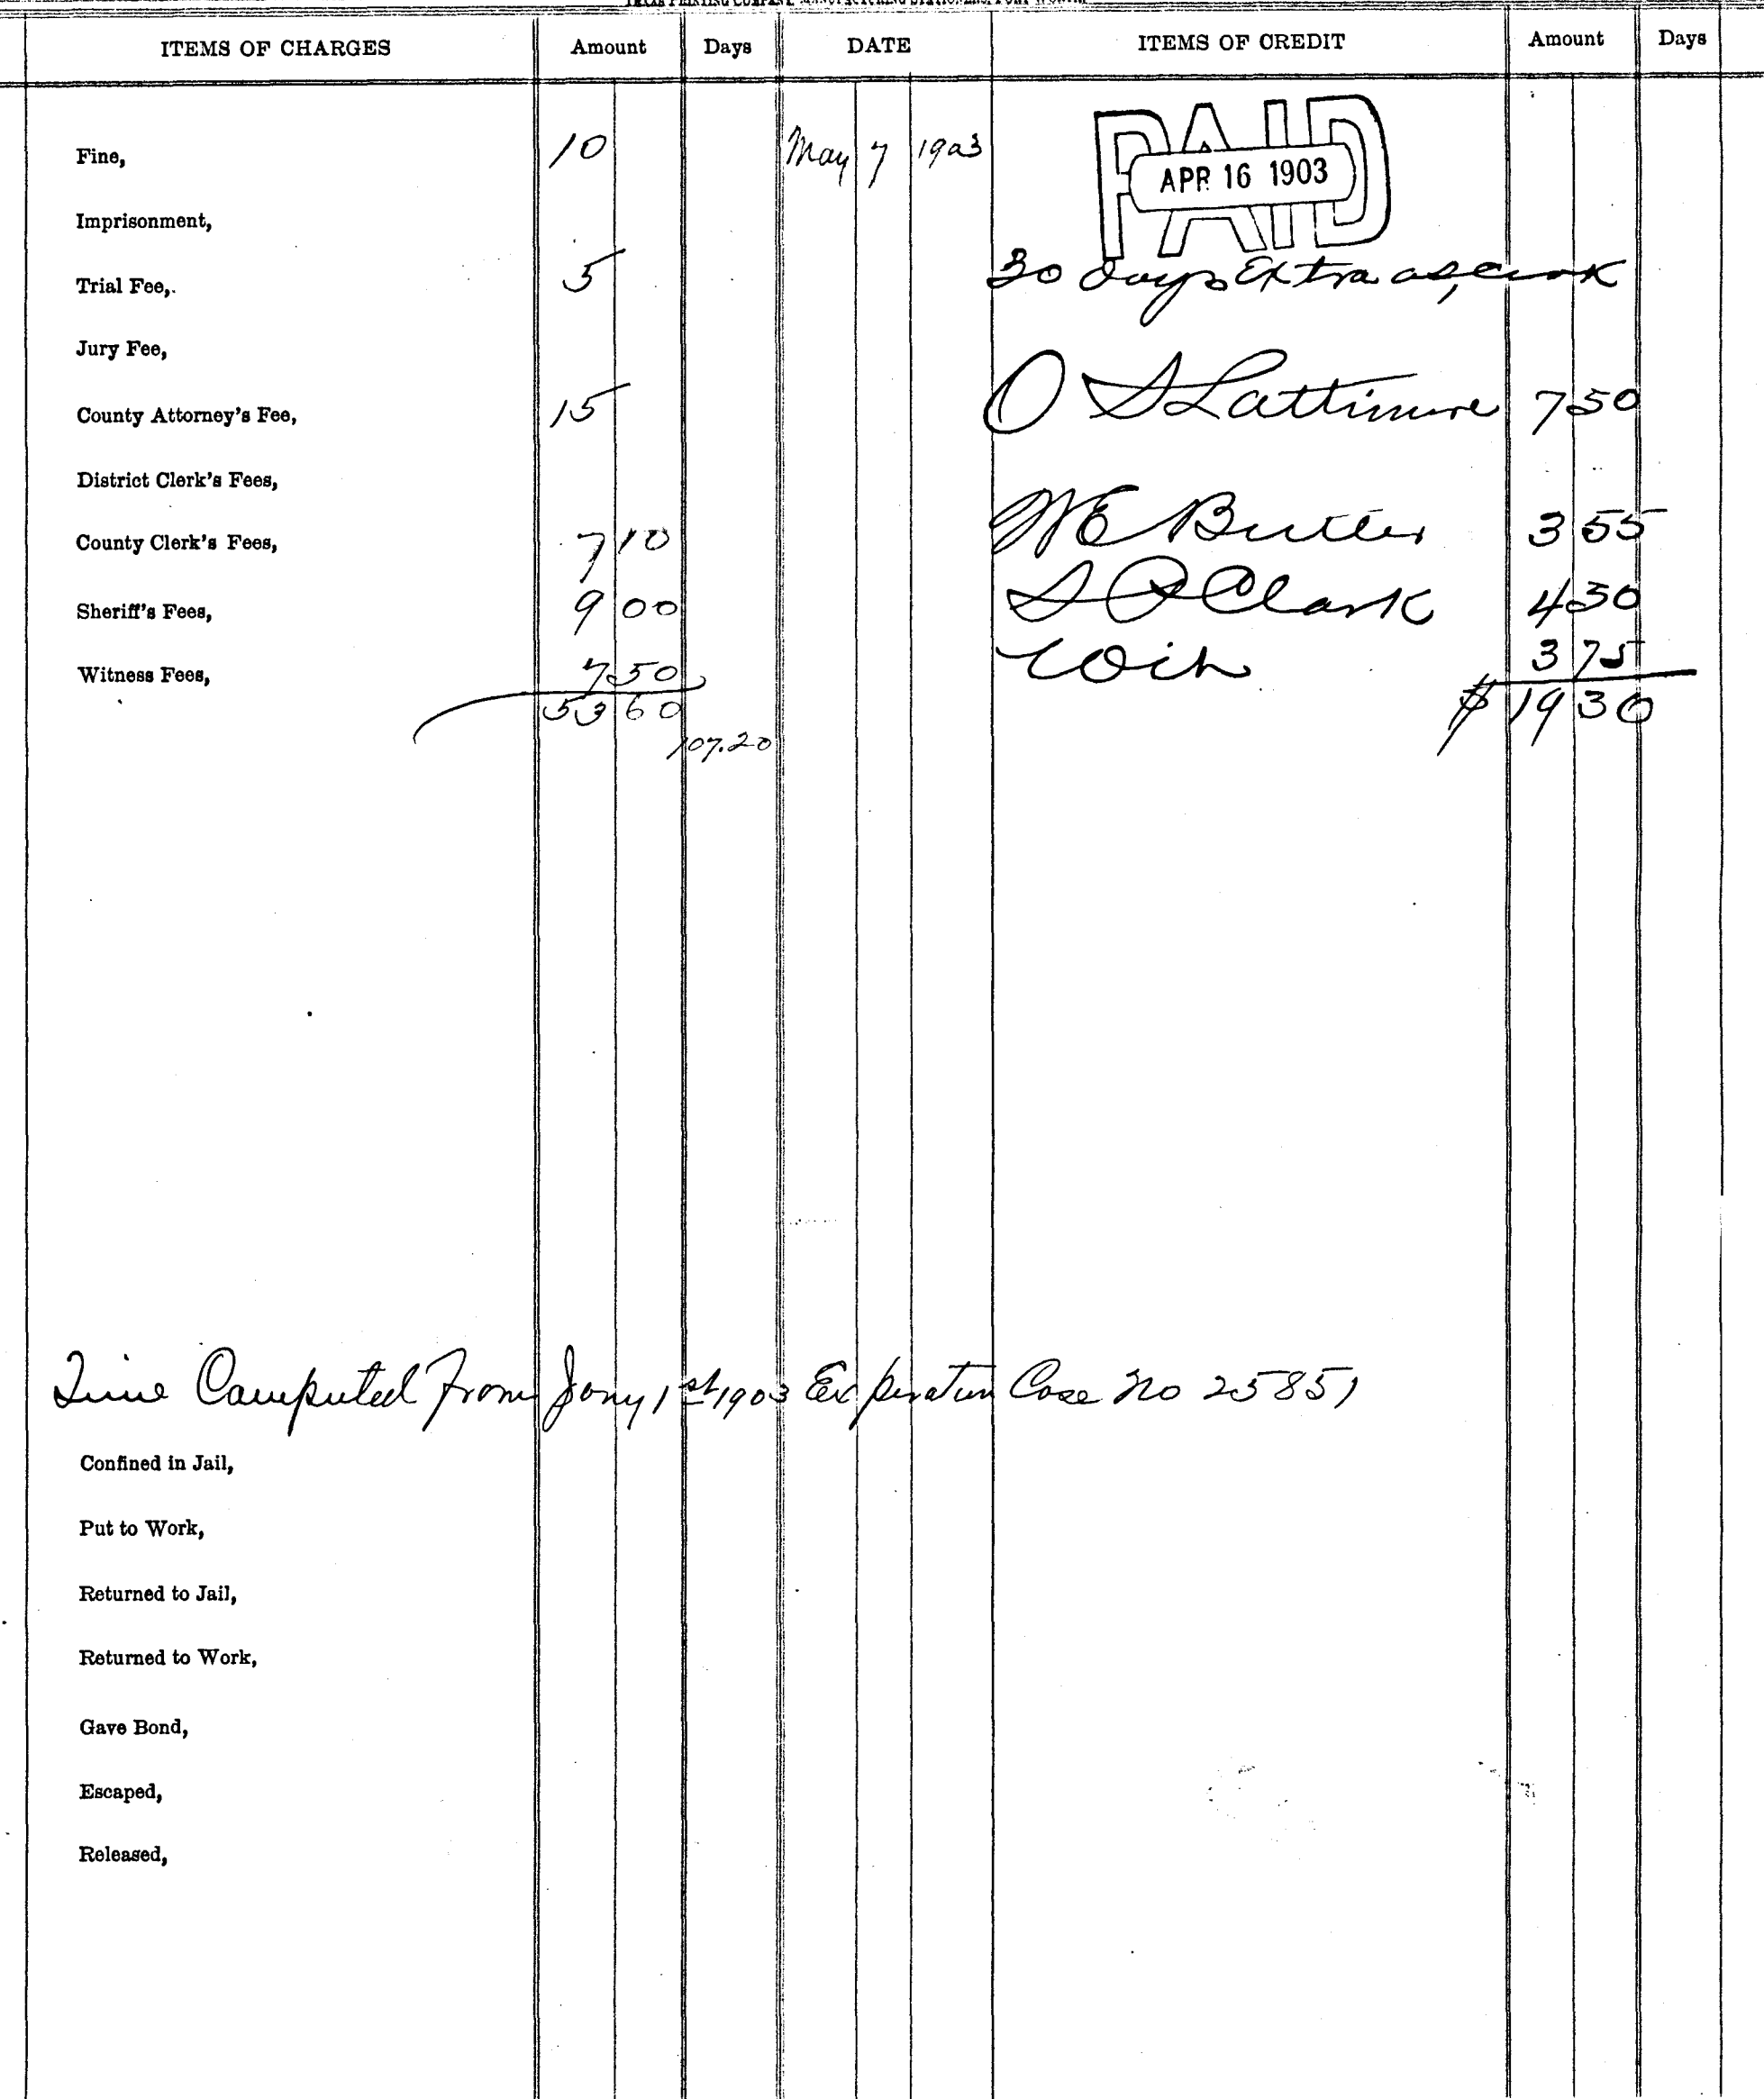 TEXAS PRINTING COMPANY, MANUFACTURING STATIONERS, FORT WORTH
ITEMS OF CHARGES Amount Days DATE ITEMS OF CREDIT Amount Days
PAID
APR 16 1903
Fine, 10 May 7 1903
Imprisonment,
Trial Fee, 5 30 days Extra as, cook
Jury Fee,
County Attorney's Fee, 15 O S Lattimore 7 50
District Clerk's Fees,
County Clerk's Fees, 7 10 W E Butler 3 55
Sheriff's Fees, 9 00 Clark 4 50
Witness Fees, 7 50 Wit 3 75
53 60 $ 19 30
107.20
Time Computed From Jany 1st 1903 Expiration Case No 25851
Confined in Jail,
Put to Work,
Returned to Jail,
Returned to Work,
Gave Bond,
Escaped,
Released,